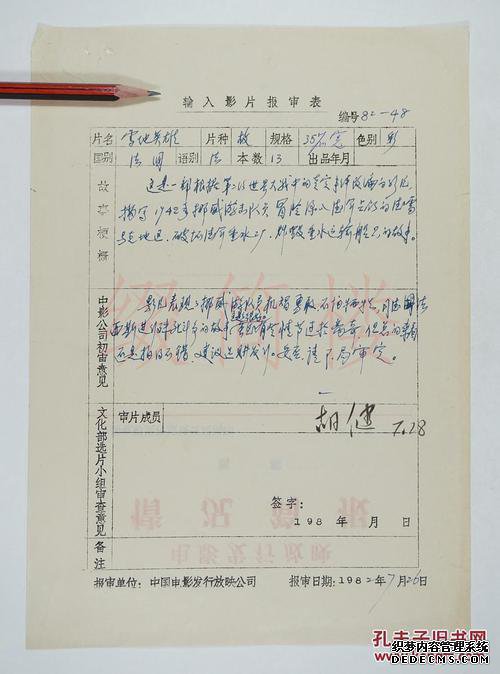 输入影片报审表
编号82-48
片名 雪地英雄 片种 故 规格 35%宽 色别 彩
国别 法国 语别 法 本数 13 出品年月
故事梗概
这是一部根据第二次世界大战中的真实事件改编的影片,
描写1942年挪威游击队员冒险深入德军占领的
地区,破坏德军重水工厂,炸毁重水运输船只的故事。
中影公司初审意见
影片表现了挪威游击队员机智勇敢、不怕牺牲,
西斯进行斗争的故事,
还是拍的不错,建议选购发行。妥否,请 局审定。
胡健 7.28
文化部选片小组审查意见
审片成员
签字:
198 年 月 日
备注
报审单位:中国电影发行放映公司 报审日期:1982年7月26日
缀简楼
情况简报
电影发行放映
孔夫子旧书网
织梦内容管理系统
WWW.DEDECMS.COM